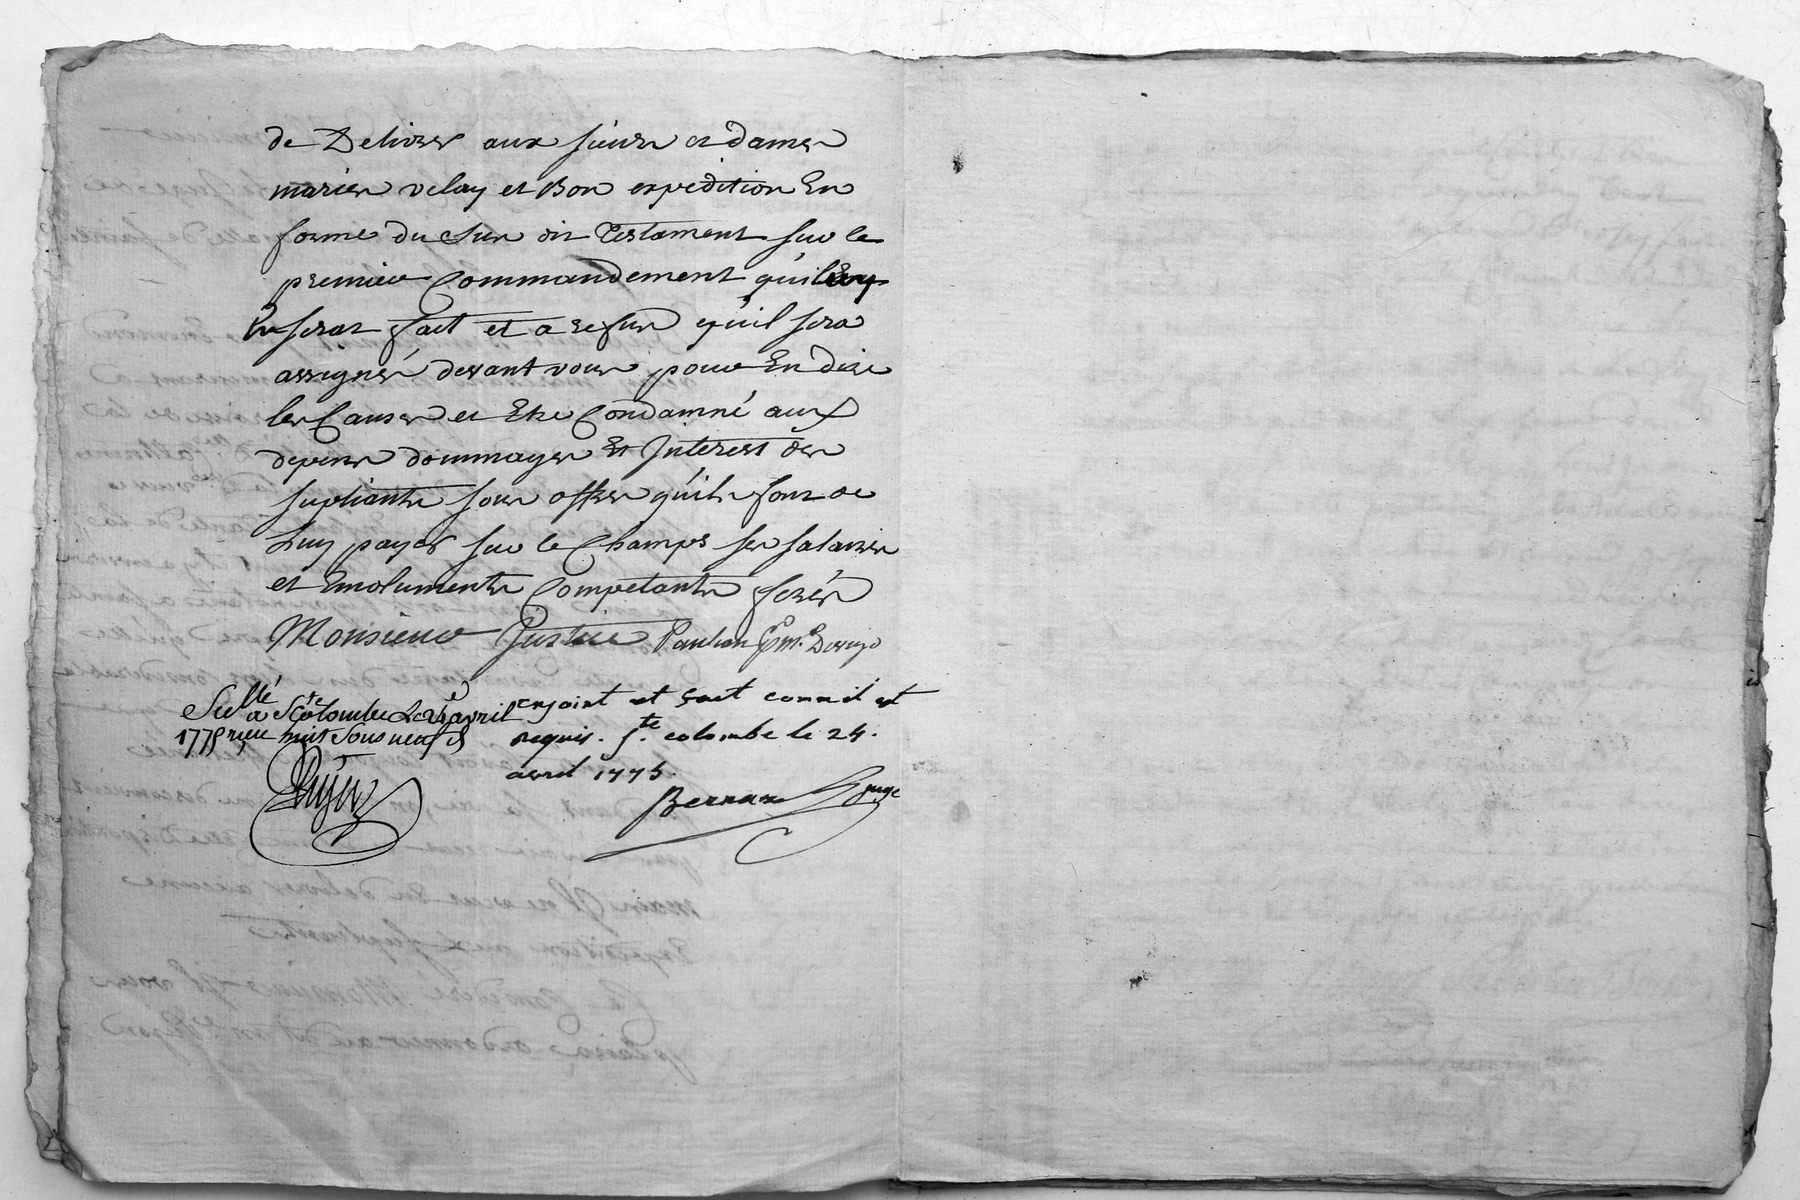 de Delivrer aux sieurs et dames
maries velay et Bon expedition En
forme du sus dit Testament sur le
premier Commandement qu'il luy
En seras fait et a refus qu'il sera
assignés devant vous pour En dire
les Causes et Etre Condamné aux
depens dommages Et Interest des
supliants sous offres qu'ils font de
Luy payer sur le Champs ses salaires
et Emoluments Competants ferés
Monsieur Justice Paulian
Sellé a Ste Colombe Le 24e avril
1775 reçu huit sous neuf d
enjoint et fait comme il est
requis. Ste colombe le 24.
avril 1775.
Bernard juge